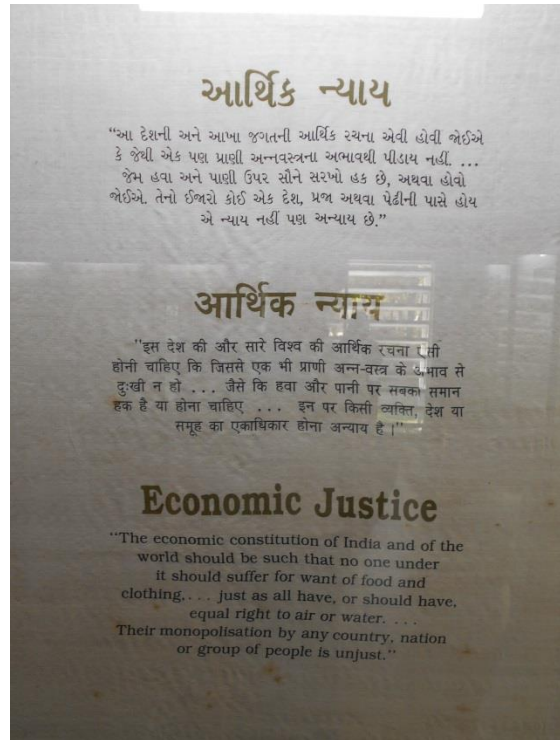 આર્થિક ન્યાય
“આ દેશની અને આખા જગતની આર્થિક રચના એવી હોવી જોઈએ
કે જેથી એક પણ પ્રાણી અન્નવસ્ત્રના અભાવથી પીડાય નહીં. ...
જેમ હવા અને પાણી ઉપર સૌને સરખો હક છે, અથવા હોવો
જોઈએ. તેનો ઈજારો કોઈ એક દેશ, પ્રજા અથવા પેઢીની પાસે હોય
એ ન્યાય નહીં પણ અન્યાય છે.”
आर्थिक न्याय
"इस देश की और सारे विश्व की आर्थिक रचना ऐसी
होनी चाहिए कि जिससे एक भी प्राणी अन्न-वस्त्र के अभाव से
दुःखी न हो ... जैसे कि हवा और पानी पर सबका समान
हक है या होना चाहिए ... इन पर किसी व्यक्ति, देश या
समूह का एकाधिकार होना अन्याय है।"
Economic Justice
"The economic constitution of India and of the
world should be such that no one under
it should suffer for want of food and
clothing,. . . just as all have, or should have,
equal right to air or water. . . .
Their monopolisation by any country, nation
or group of people is unjust."